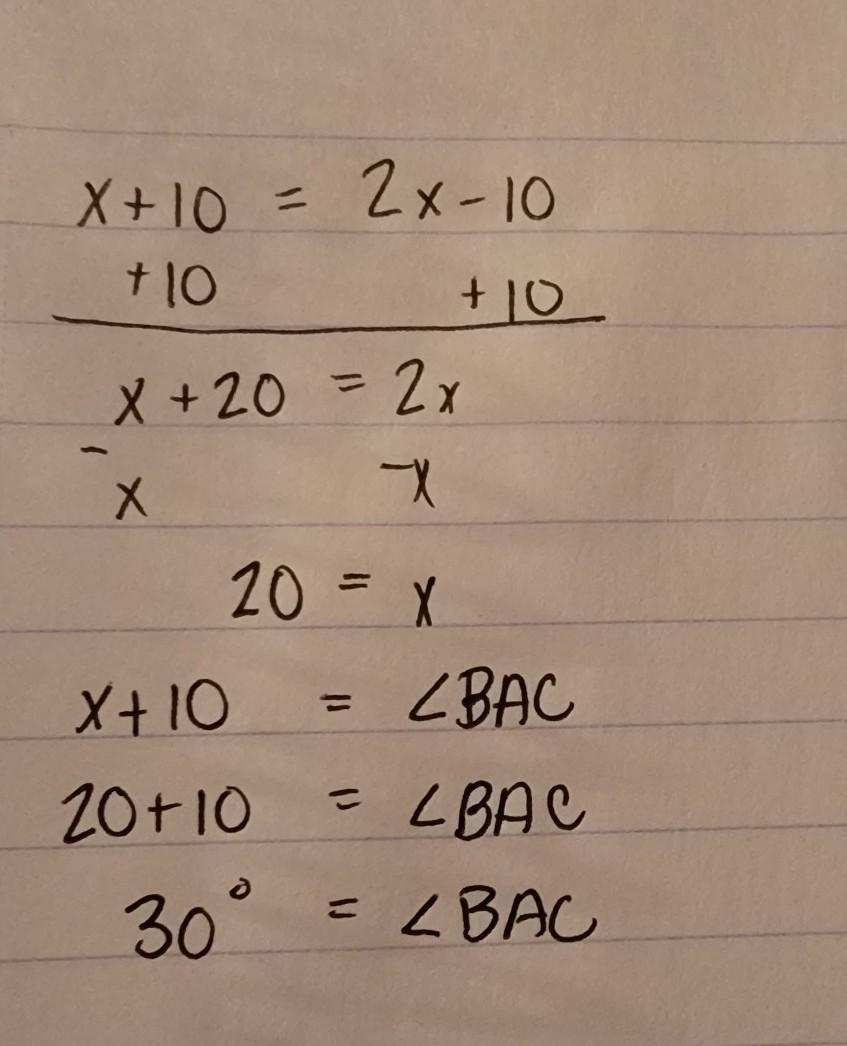 x+10 = 2x-10
+10 +10
x+20 = 2x
-x -x
20 = x
x+10 = ∠BAC
20+10 = ∠BAC
30° = ∠BAC